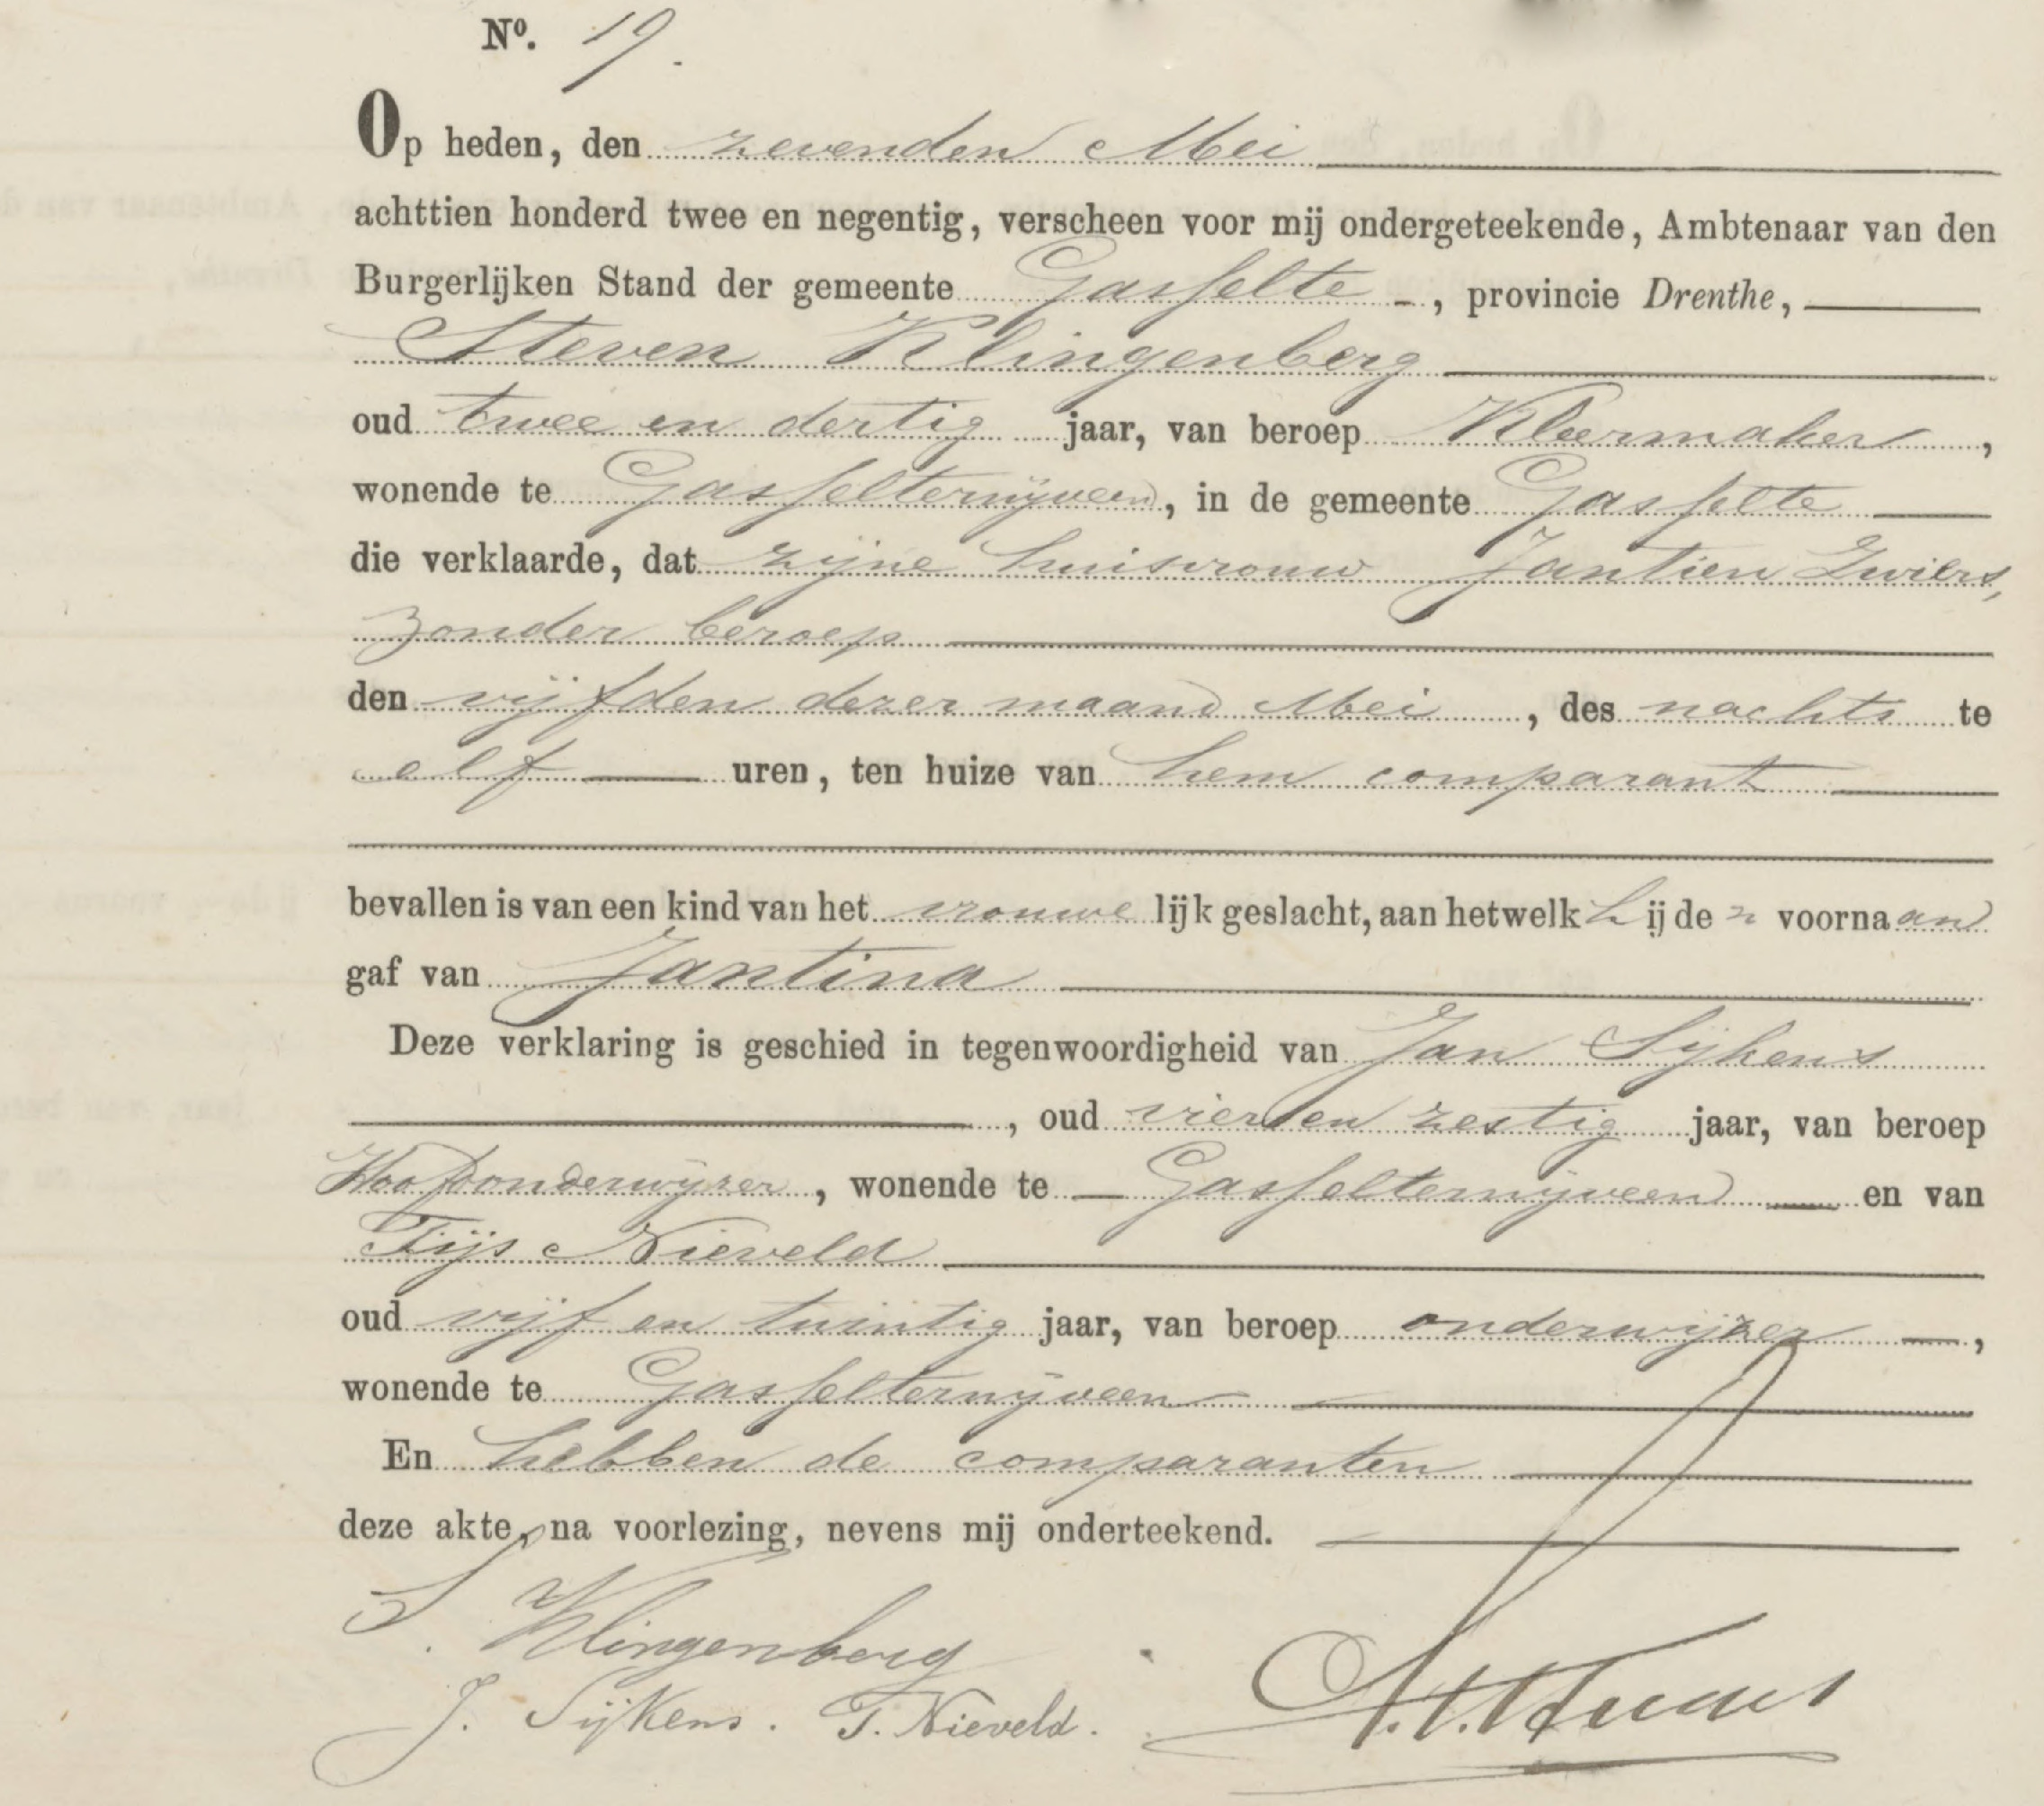 No. 19.
Op heden, den zevenden Mei
achttien honderd twee en negentig, verscheen voor mij ondergeteekende, Ambtenaar van den
Burgerlijken Stand der gemeente Gasselte -, provincie Drenthe,
Steven Klingenberg
oud twee en dertig jaar, van beroep Kleermaker,
wonende te Gasselternijveen, in de gemeente Gasselte
die verklaarde, dat zijne huisvrouw Jantien Zwiers,
zonder beroep
den vijfden dezer maand Mei, des nachts te
elf uren, ten huize van hem comparant
bevallen is van een kind van het vrouwelijk geslacht, aan hetwelk hij den voornaam
gaf van Jantina
Deze verklaring is geschied in tegenwoordigheid van Jan Sijkens
, oud vier en zestig jaar, van beroep
Hoofdonderwijzer, wonende te Gasselternijveen en van
Tijs Nieveld
oud vijf en twintig jaar, van beroep onderwijzer,
wonende te Gasselternijveen
En hebben de comparanten
deze akte, na voorlezing, nevens mij onderteekend.
S. Klingenberg
J. Sijkens. T. Nieveld.